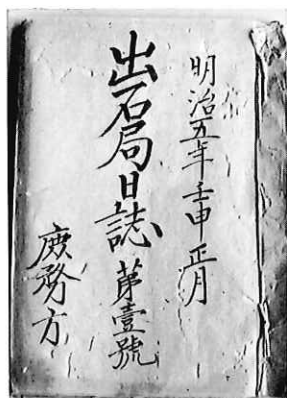 明治五年壬申正月
出石局日誌 第壹號
庶務方